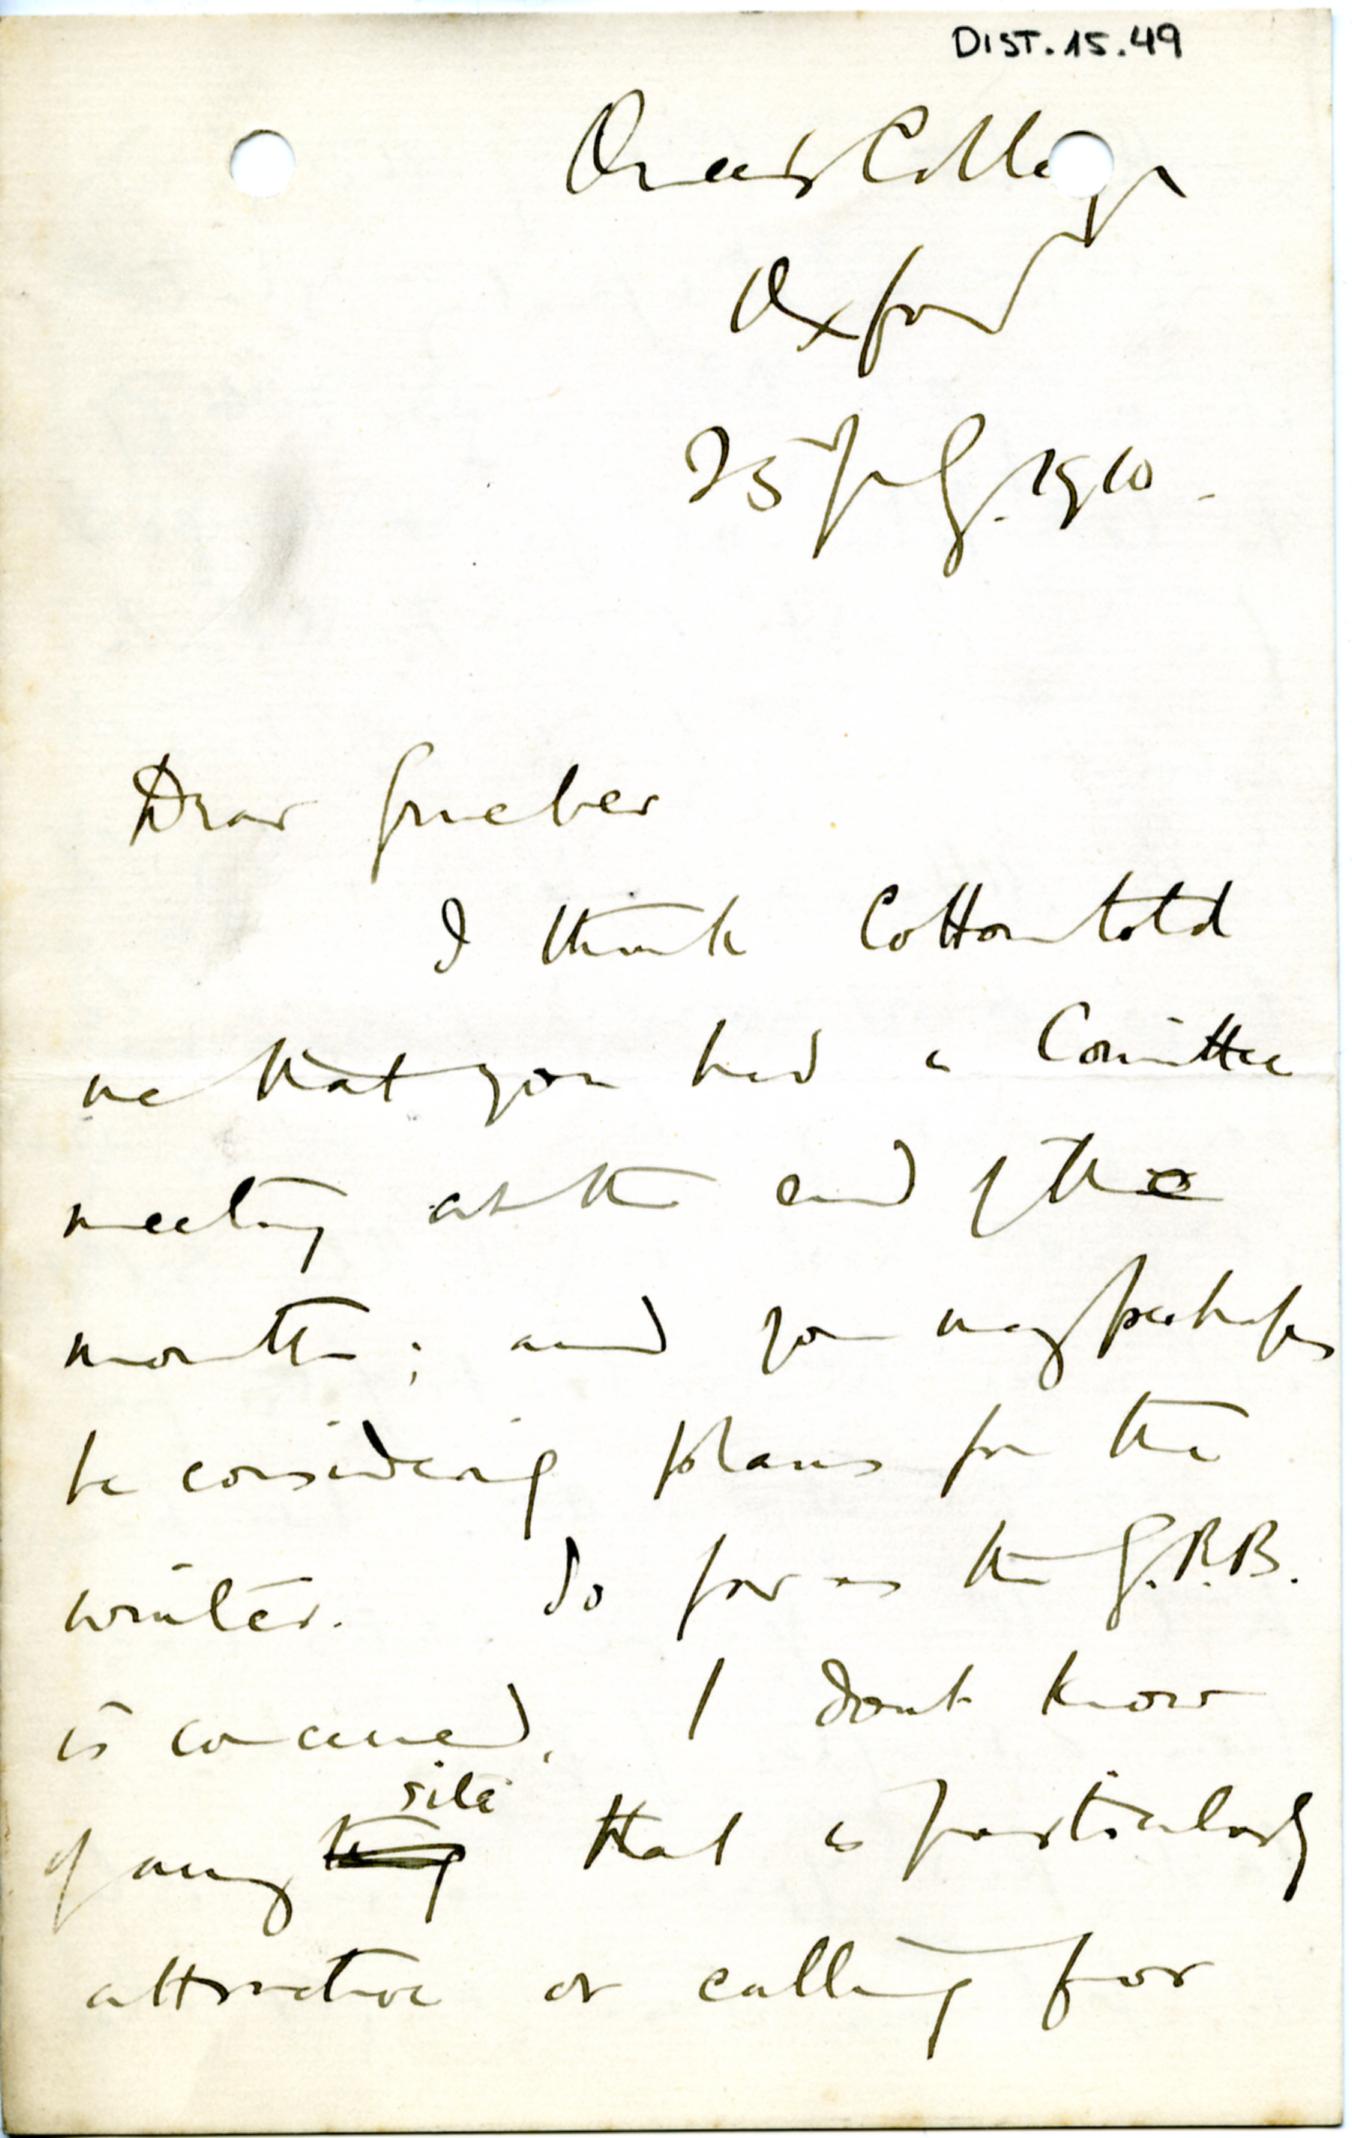 DIST.15.49
Queen's College
Oxford
25 July. 1910.
Dear Grueber
I think Cotton told
me that you had a Comittee
meeting at the end of the
month; and you may perhaps
be considering plans for the
winter. So far as the G.R.B.
is concerned, I dont know
site
of any thing that is particularly
attractive or calling for